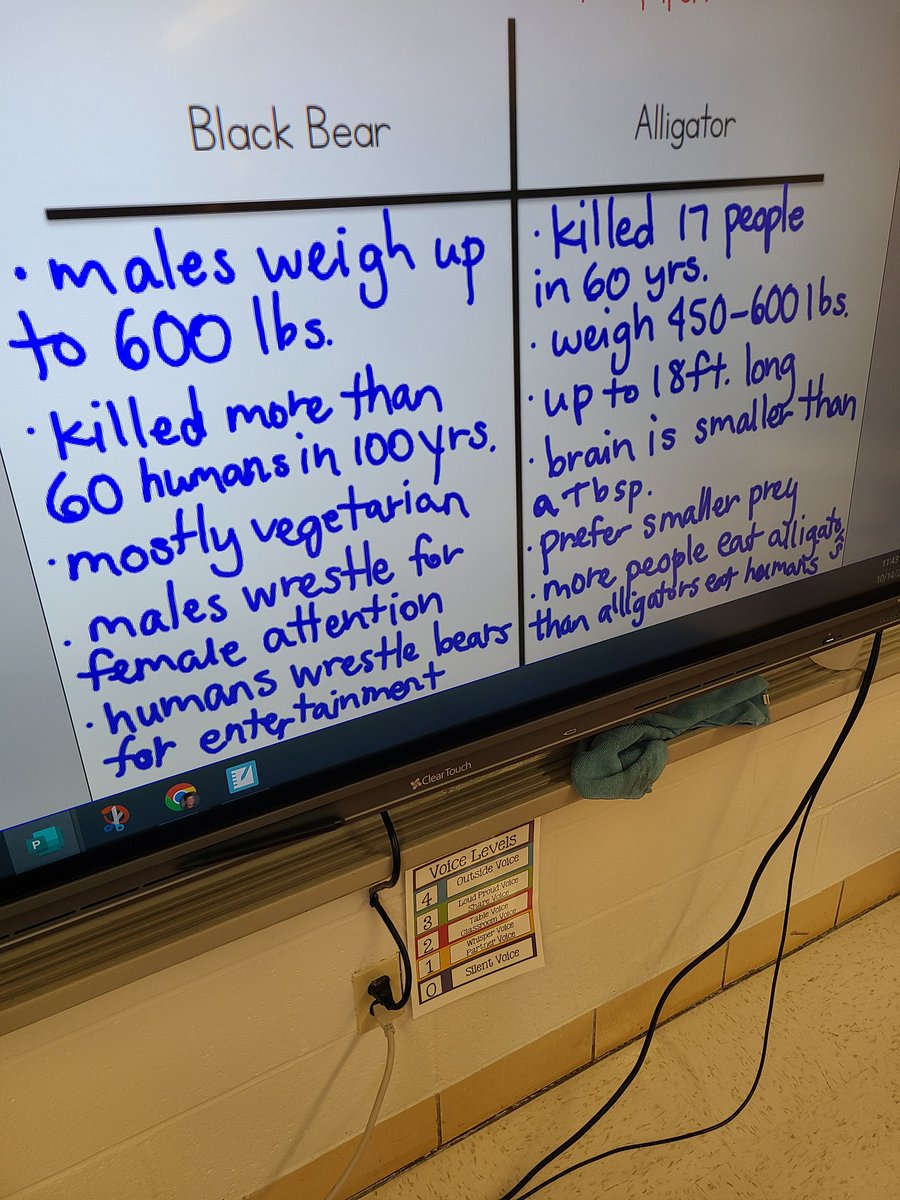 Black Bear
Alligator
• males weigh up
to 600 lbs.
• killed more than
60 humans in 100 yrs.
• mostly vegetarian
• males wrestle for
female attention
• humans wrestle bears
for entertainment
• killed 17 people
in 60 yrs.
• weigh 450-600 lbs.
• up to 18ft. long
• brain is smaller than
a Tbsp.
• prefer smaller prey
• more people eat alligators
than alligators eat humans
11:43
10/14/2
P
ClearTouch
Voice Levels
4 Outside Voice
3 Loud Proud Voice
Share Voice
2 Table Voice
Classroom Voice
1 Whisper Voice
Partner Voice
0 Silent Voice